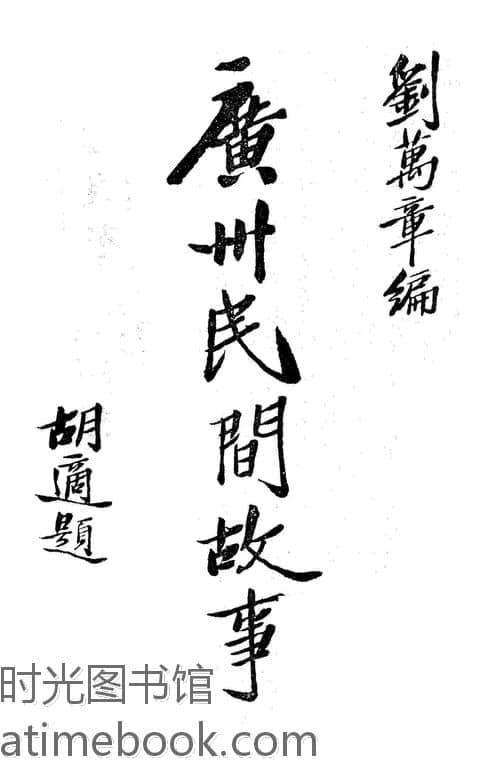 劉萬章編
廣州民間故事
胡適題
时光图书馆
atimebook.com